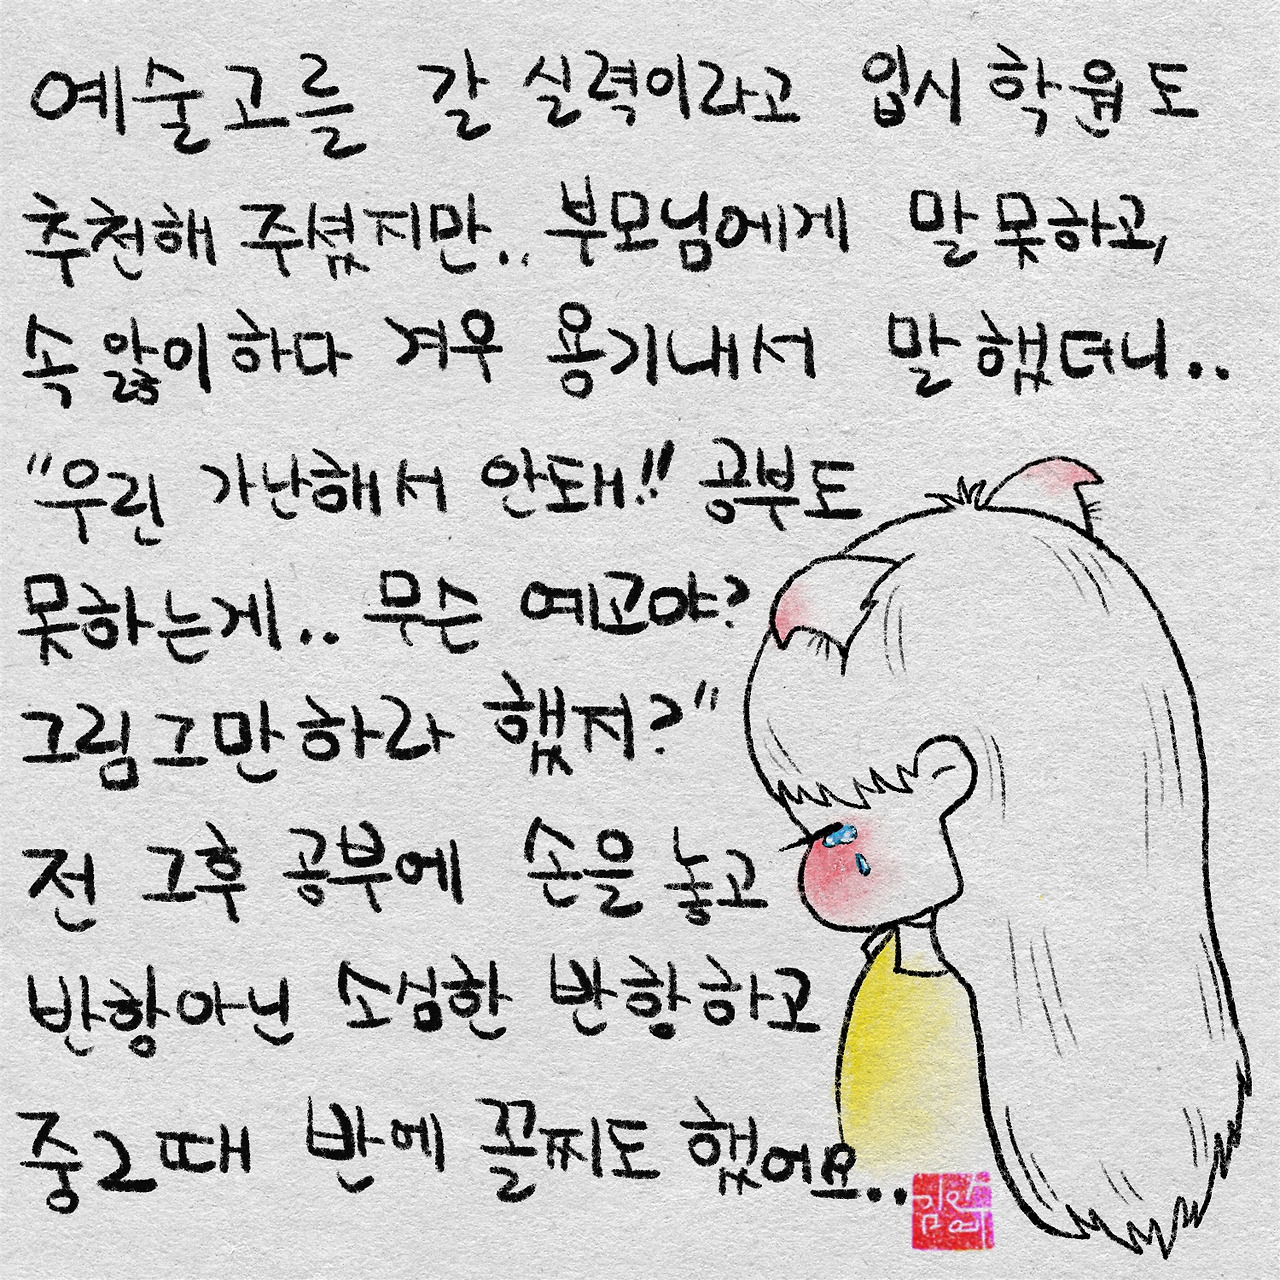 예술고를 갈 실력이라고 입시 학원도
추천해 주셨지만.. 부모님에게 말 못하고,
속 앓이 하다 겨우 용기내서 말 했더니..
"우린 가난해서 안돼!! 공부도
못하는게.. 무슨 예고야?
그림 그만 하라 했지?"
전 그후 공부에 손을 놓고
반항아닌 소심한 반항하고
중2때 반에 꼴찌도 했어요..